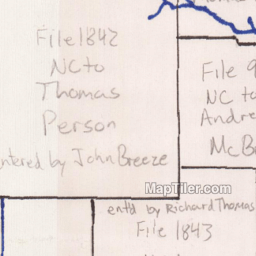 File 1842
NC to
Thomas
Person
entered by John Breeze
File 9
NC to
Andre
McB
MapTiler.com
ent'd by Richard Thomas
File 1843